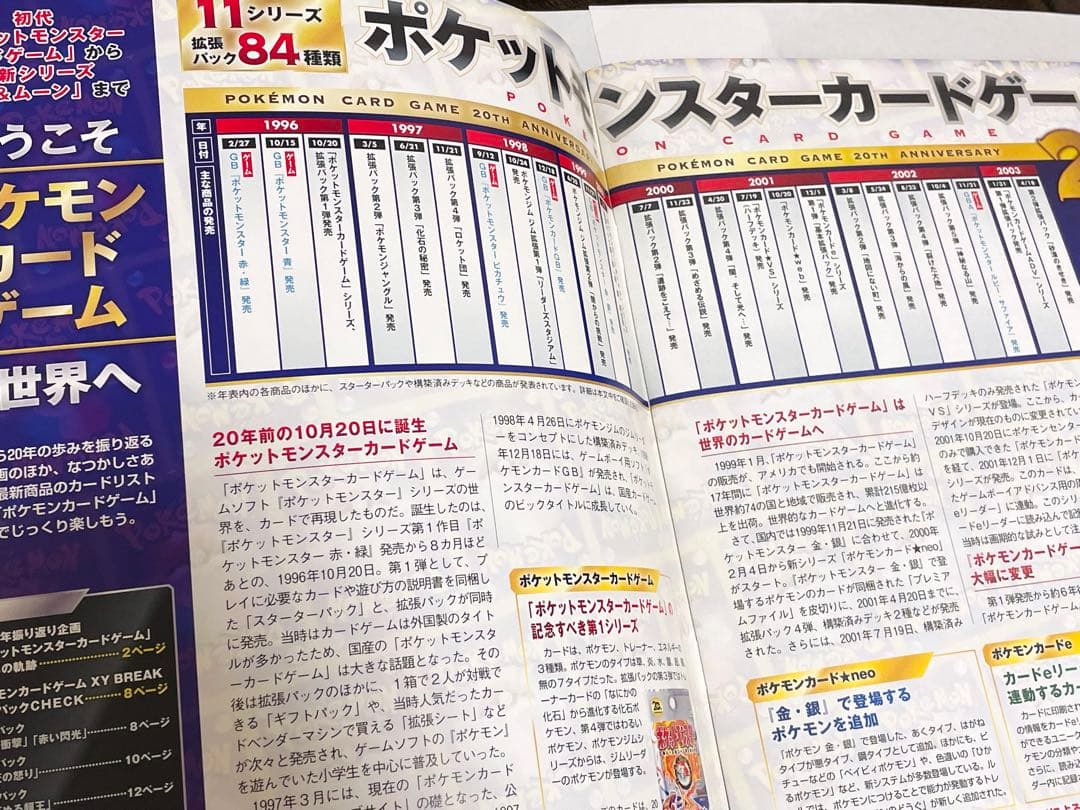 初代
ットモンスター
ゲーム」から
新シリーズ
&ムーン」まで
うこそ
ケモン
カード
ゲーム
世界へ
ら20年の歩みを振り返る
画のほか、なつかしさあ
最新商品のカードリスト
「ポケモンカードゲーム」
でじっくり楽しもう。
年振り返り企画
モンスターカードゲーム」
の軌跡
2ページ
モンカードゲーム XY BREAK
パックCHECK
8ページ
パック
衝撃」「赤い閃光」
8ページ
パック
の怒り」
10ページ
パック
12ページ
11シリーズ
拡張パック84種類
ポケットモンスターカードゲー
ON CARD GAME
POKÉMON CARD GAME 20TH ANNIVERSA
POKÉMON CARD GAME 20TH ANNIVERSARY
年
日付
主な商品の発売
1996
2/27
ゲーム
GB『ポケットモンスター 赤・緑』発売
10/15
ゲーム
GB『ポケットモンスター 青』発売
10/20
「ポケットモンスターカードゲーム」シリーズ、
拡張パック第1弾発売
1997
3/5
拡張パック第2弾「ポケモンジャングル」発売
6/21
拡張パック第3弾「化石の秘密」発売
11/21
拡張パック第4弾「ロケット団」発売
1998
9/12
ゲーム
GB『ポケットモンスター ピカチュウ』発売
10/24
ポケモンジム 拡張第1弾「リーダーズスタジアム」
発売
12/18
ゲーム
GB『ポケモンカードGB』発売
1999
2000
7/7
拡張パック第2弾「遺跡をこえて…」発売
11/23
拡張パック第3弾「めざめる伝説」発売
2001
4/20
拡張パック第4弾「闇、そして光へ…」発売
7/19
「ポケモンカード★VS」シリーズ
(ハーフデッキ)発売
10/20
「ポケモンカード★web」発売
12/1
「ポケモンカードe」シリーズ
第1弾「基本拡張パック」発売
2002
3/8
拡張パック第2弾「地図にない町」発売
5/24
拡張パック第3弾「海からの風」発売
8/23
拡張パック第4弾「裂けた大地」発売
10/4
拡張パック第5弾「神秘なる山」発売
11/21
ゲーム
GBA『ポケットモンスター ルビー、サファイア』発売
2003
1/31
「ポケモンカードゲームADV」シリーズ
第1弾拡張パック発売
4/18
第2弾拡張パック「砂漠のきせき」発売
※年表内の各商品のほかに、スターターパックや構築済みデッキなどの商品が発表されています。詳細は本文中をご確認
20年前の10月20日に誕生
ポケットモンスターカードゲーム
「ポケットモンスターカードゲーム」は、ゲー
ムソフト『ポケットモンスター』シリーズの世
界を、カードで再現したものだ。誕生したのは、
『ポケットモンスター』シリーズ第1作目『ポ
ケットモンスター 赤・緑』発売から8カ月ほど
あとの、1996年10月20日。第1弾として、プ
レイに必要なカードや遊び方の説明書を同梱し
た「スターターパック」と、拡張パックが同時
に発売。当時はカードゲームは外国製のタイト
ルが多かったため、国産の「ポケットモンスタ
ーカードゲーム」は大きな話題となった。その
後は拡張パックのほかに、1箱で2人が対戦で
きる「ギフトパック」や、当時人気だったカー
ドベンダーマシンで買える「拡張シート」など
が次々と発売され、ゲームソフトの『ポケモン』
を遊んでいた小学生を中心に普及していった。
1997年3月には、現在の「ポケモンカード
ブサイト」の礎となった、
1998年4月26日にポケモンジムのジムリーダ
ーをコンセプトにした構築済みデッキ、
年12月18日には、ゲームボーイ用ソフト『ポ
ケモンカードGB』が発売され、「ポケット
ンスターカードゲーム」は、国産カードゲーム
のビックタイトルに成長していく。
ポケットモンスターカードゲーム
「ポケットモンスターカードゲーム」の
記念すべき第1シリーズ
カードは、ポケモン、トレーナー、エネルギーの
3種類。ポケモンのタイプは草、炎、水、雷、超、闘、
無の7タイプだった。拡張パックの第3弾ではトレ
ーナーカードの「なにかの
化石」から進化する化石ポ
ケモン、第4弾ではわるい
ポケモン、ポケモンジムシ
リーズからは、ジムリーダ
ーのポケモンが登場する。
「ポケットモンスターカードゲーム」は
世界のカードゲームへ
1999年1月、「ポケットモンスターカードゲーム」
の販売が、アメリカでも開始される。ここから約
17年間に「ポケットモンスターカードゲーム」は
世界約74の国と地域で販売され、累計215億枚以
上を出荷。世界的なカードゲームへと進化する。
さて、国内では1999年11月21日に発売された『ポ
ケットモンスター 金・銀』に合わせて、2000年
2月4日から新シリーズ「ポケモンカード★neo」
がスタート。『ポケットモンスター 金・銀』で登
場するポケモンのカードが同梱された「プレミア
ムファイル」を皮切りに、2001年4月20日までに、
拡張パック4弾、構築済みデッキ2種などが発売
された。さらには、2001年7月19日、構築済み
ハーフデッキのみ発売された「ポケモン
VS」シリーズが登場。ここから、カー
デザインが現在のものに変更されてい
2001年10月20日にポケモンセンター
のみで購入できた「ポケモンカード★
を経て、2001年12月1日に「ポケモン
シリーズが発売。このカードは、
たゲームボーイアドバンス用の周
eリーダー」に連動。このカード
ードeリーダーに読み込んで記憶
当時は画期的な試みとして注
「ポケモンカードゲーム
大幅に変更
第1弾発売から約6年
「ポケモンカードゲーム」
ポケモンカード★neo
『金・銀』で登場する
ポケモンを追加
『ポケモン 金・銀』で登場した、あくタイプ、はがね
タイプが悪タイプ、鋼タイプとして追加。ほかにも、ピ
チューなどの「ベイビィポケモン」や、色違いの「ひか
るポケモン」など、新システムが多数登場している。ル
ールでは、ポケモンにつけることで能力が発動するトレ
ポケモンカードe
カードeリー
連動するカー
カードに印刷され
の情報をカードeリ
ができるユニーク
モンの分類やタ
さらに、読み込